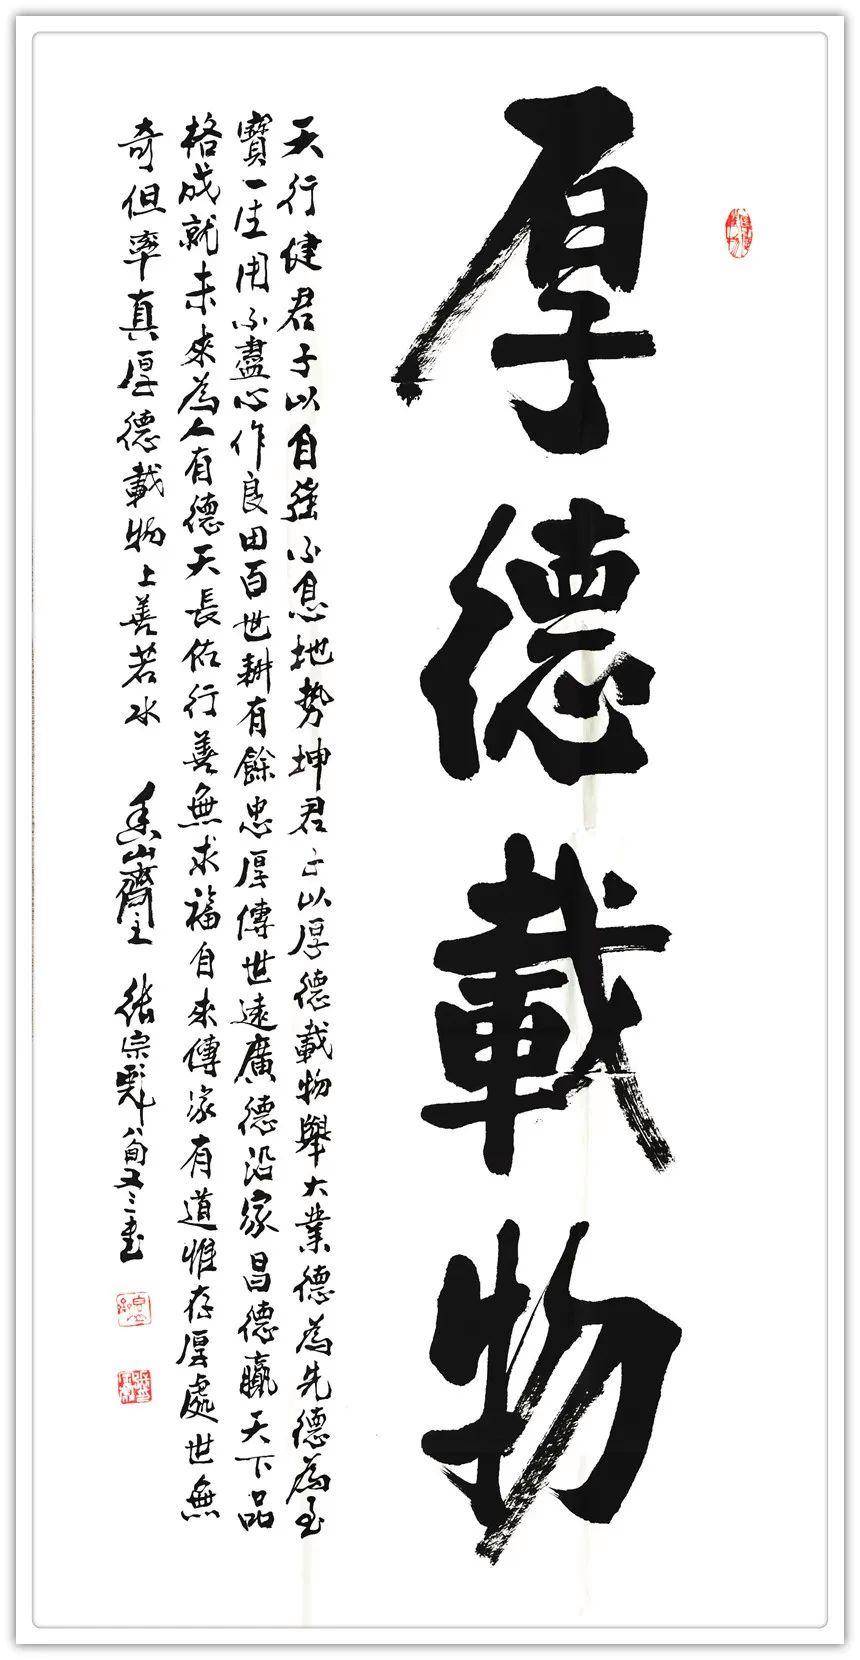 厚德載物
天行健君子以自強不息地势坤君子以厚德載物舉大業德為先德為至
寶一生用不盡心作良田百世耕有餘忠厚傳世遠廣德沿家昌德贏天下品
格成就未來為人有德天長佑行善無求福自來傳家有道惟存厚處世無
奇但率真厚德載物上善若水 山齋主 張宗彪八旬又三書